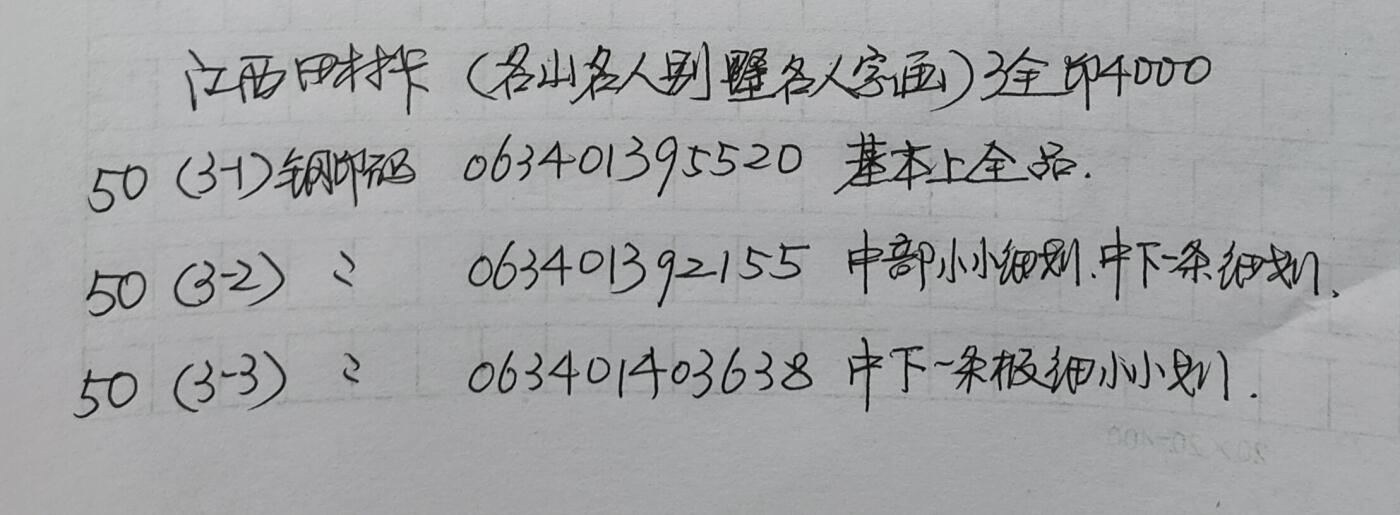 江西田村卡（名山名人别墅名人字画）3全印4000
50（3-1）钢印码 063401395520 基本上全品.
50（3-2）〃 063401392155 中部小小细划.中下一条细划.
50（3-3）〃 063401403638 中下一条极细小小划.
20×20=400